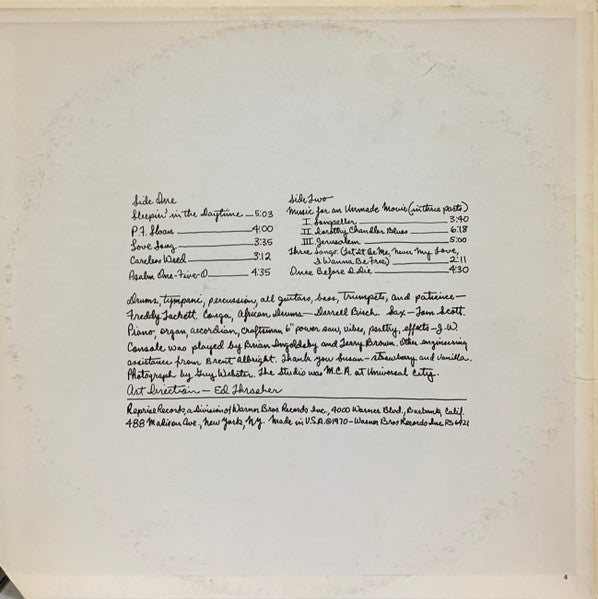 Side One
Sleepin' in the Daytime — 5:03
P.F. Sloan 4:00
Love Song 3:35
Careless Weed 3:12
Psalm One-Five-O 4:35
Side Two
Music for an Unmade Movie (in three parts)
I Songseller 3:40
II Dorothy Chandler Blues 6:18
III Jerusalem 5:00
Three Songs (Let It Be Me, Never My Love,
I Wanna Be Free) 2:11
Once Before I Die 4:30
Drums, tympani, percussion, all guitars, bass, trumpets, and patience —
Freddy Tackett. Conga, African Drums — Darrell Birch. Sax — Tom Scott.
Piano, organ, accordian, craftsman 6" power saw, vibes, poetry, effects — J.W.
Console was played by Brian Ingoldsby and Terry Brown. Other engineering
assistance from Brent Albright. Thank you Susan — strawberry and vanilla.
Photograph by Guy Webster. The studio was M.C.A. at Universal City.
Art Direction — Ed Thrasher
Reprise Records, a division of Warner Bros Records Inc., 4000 Warner Blvd., Burbank, Calif.
488 Madison Ave., New York, N.Y. Made in U.S.A. ℗1970 — Warner Bros Records Inc. RS 6421
4